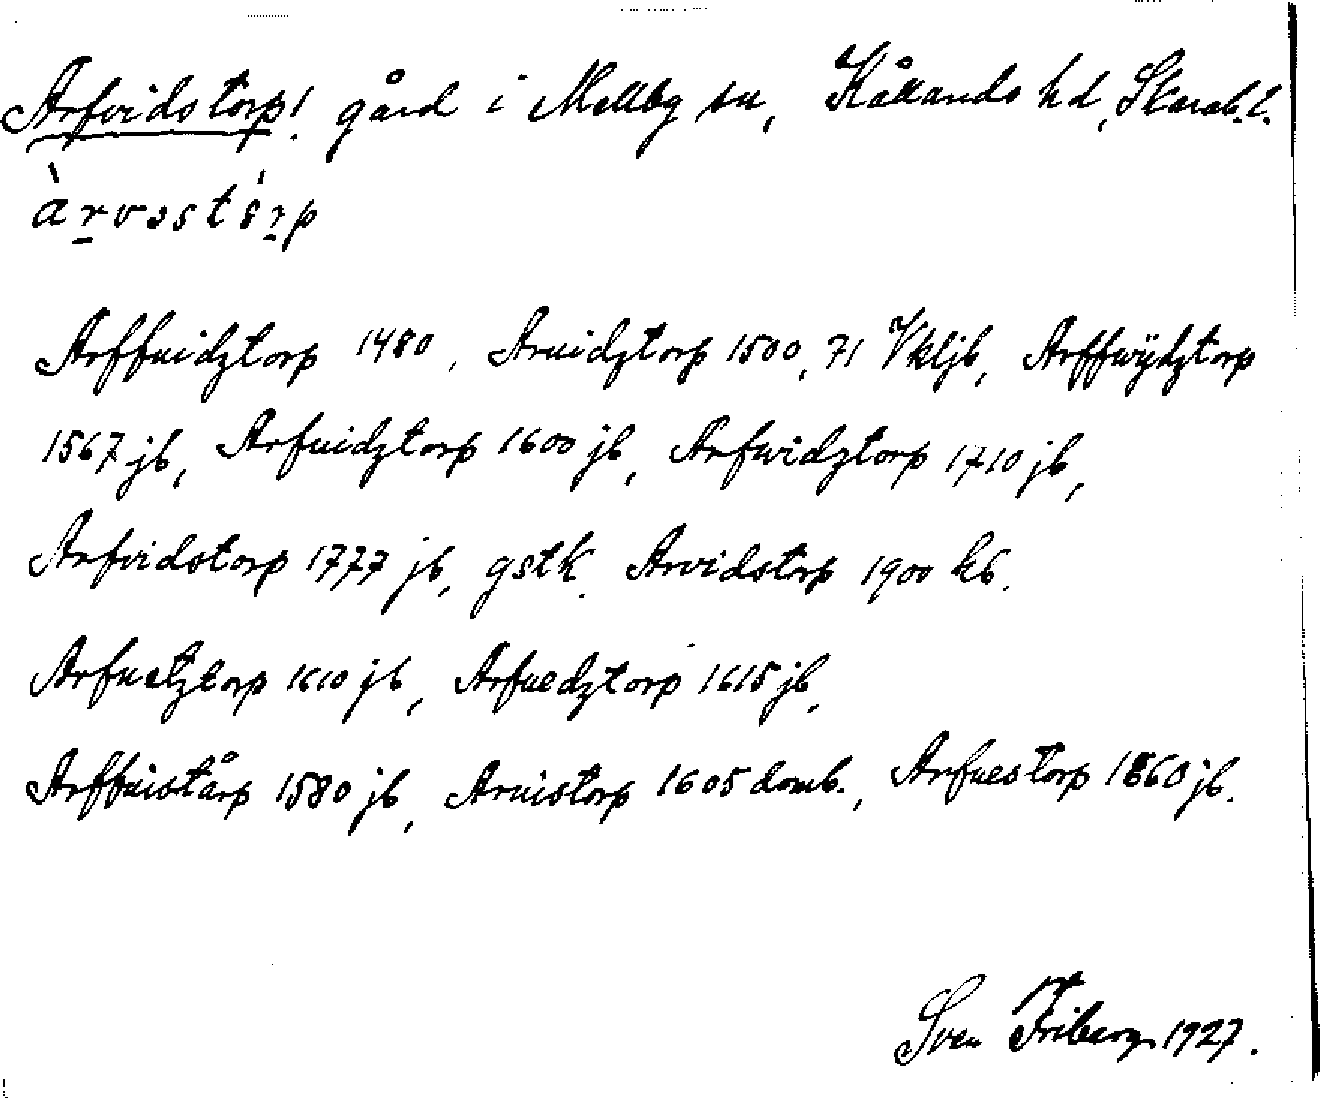 Arfvidstorp! gård i Mellby sn, Kållands hd, Skarab. l.
àrvsstórp
Arffuidztorp 1480, Aruidztorp 1500, 71 Vkljb, Arffwÿdztorp
1567 jb, Arfuidztorp 1600 jb, Arfwidztorp 1710 jb,
Arfvidstorp 1777 jb, gstk. Arvidstorp 1900 kb.
Arfuetztorp 1610 jb, Arfuedztorp 1615 jb,
Arffuistårp 1580 jb, Aruistorp 1605 domb., Arfuestorp 1660 jb.
Sven Friberg 1927.